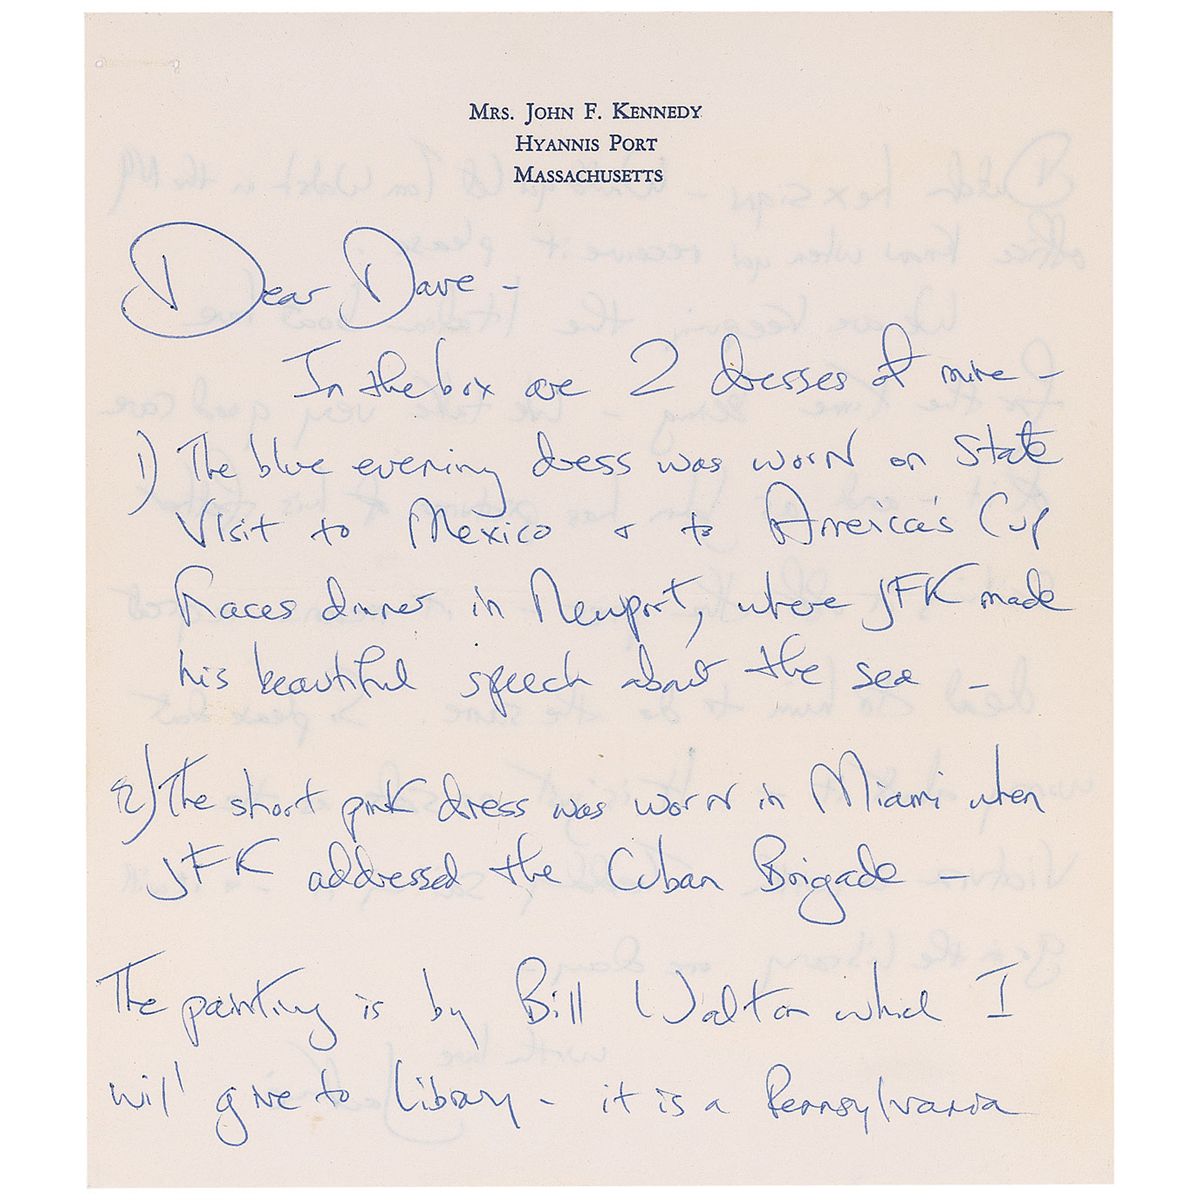 MRS. JOHN F. KENNEDY
HYANNIS PORT
MASSACHUSETTS
Dear Dave -
In the box are 2 dresses of mine -
1) The blue evening dress was worn on State
Visit to Mexico & to America's Cup
Races dinner in Newport, where JFK made
his beautiful speech about the sea -
2) The short pink dress was worn in Miami when
JFK addressed the Cuban Brigade -
The painting is by Bill Walton which I
will give to Library - it is a Pennsylvania